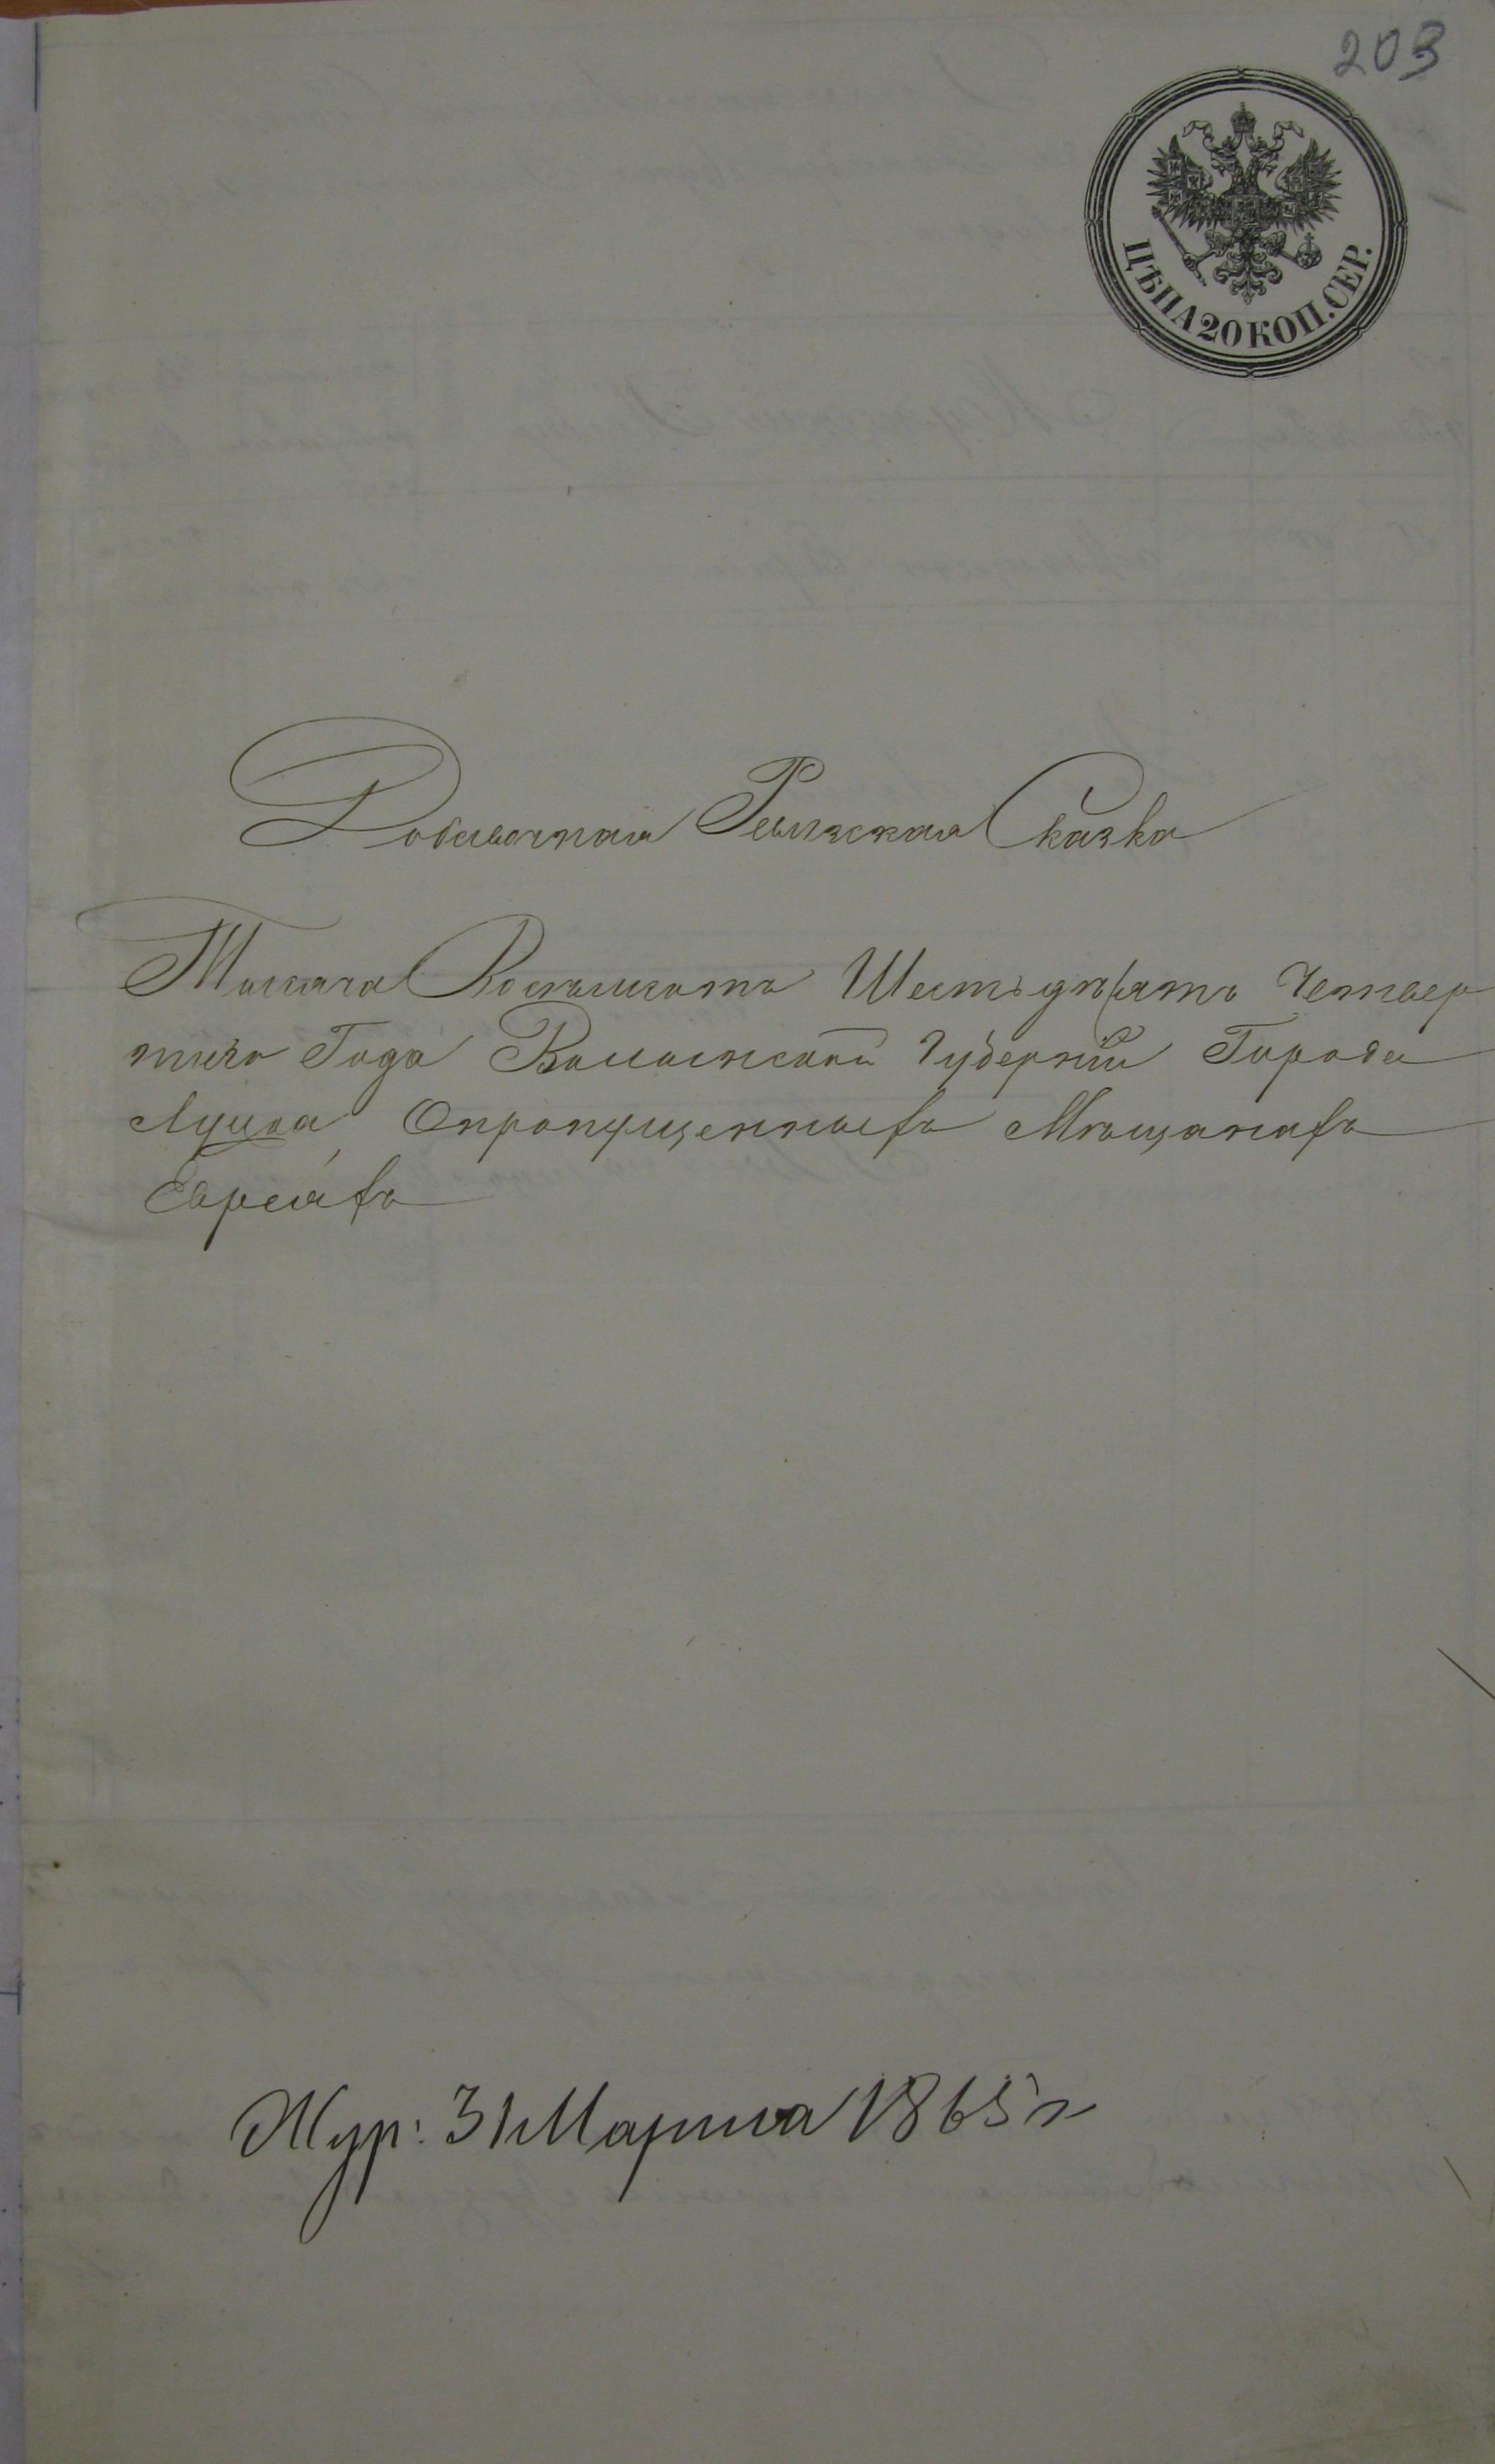 203
ЦѢНА 20 КОП. СЕР.
Добавочная Ревизская Сказка
Тысяча Восемьсотъ Шестьдѣсятъ Четвер
таго Года Волынской Губерніи Города
Луцка, О пропущенныхъ Мѣщанахъ
Евреяхъ
Жур: 31 Марта 1865 г